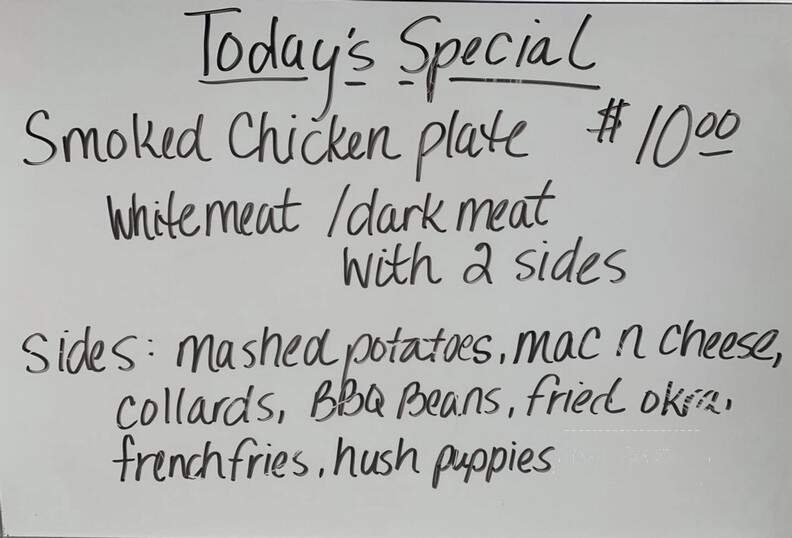 Today's Special
Smoked Chicken plate $10.00
white meat / dark meat
with 2 sides
Sides: mashed potatoes, mac n cheese,
collards, BBQ Beans, fried okra,
french fries, hush puppies